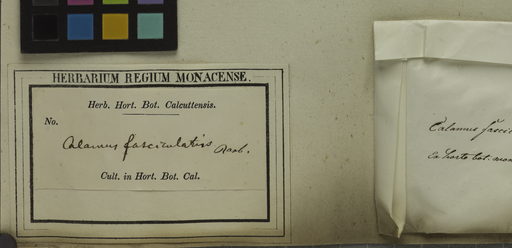 HERBARIUM REGIUM MONACENSE.
Herb. Hort. Bot. Calcuttensis.
No.
Calamus fasciculatus Roxb.
Cult. in Hort. Bot. Cal.
Calamus
Ex horto bot.